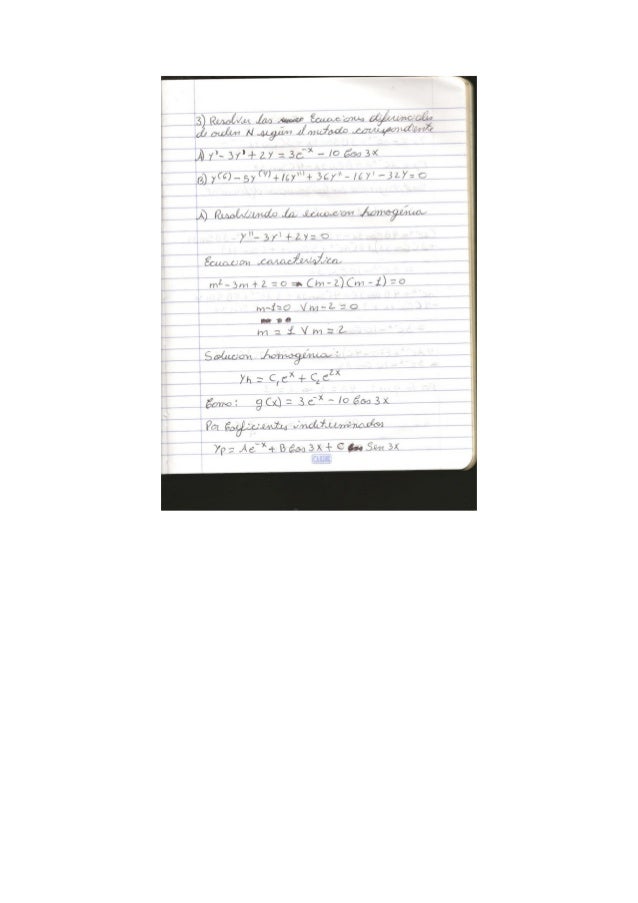 3) Resolver las Ecuaciones diferenciales
de orden N según el metodo correspondiente
A) y' - 3y' + 2y = 3e^-x - 10 Cos 3x
B) y^(6) - 5y^(4) + 16y''' + 36y'' - 16y' - 32y = 0
A) Resolviendo la ecuacion homogénia
y'' - 3y' + 2y = 0
Ecuacion caracteristica
m² - 3m + 2 = 0 (m-2)(m-1) = 0
m-1=0 V m-2=0
m = 1 V m = 2
Solucion homogénia:
yh = C₁e^x + C₂e^2x
Como: g(x) = 3e^-x - 10 Cos 3x
Por Coeficientes indeterminados
yp = Ae^-x + B Cos 3x + C Sen 3x